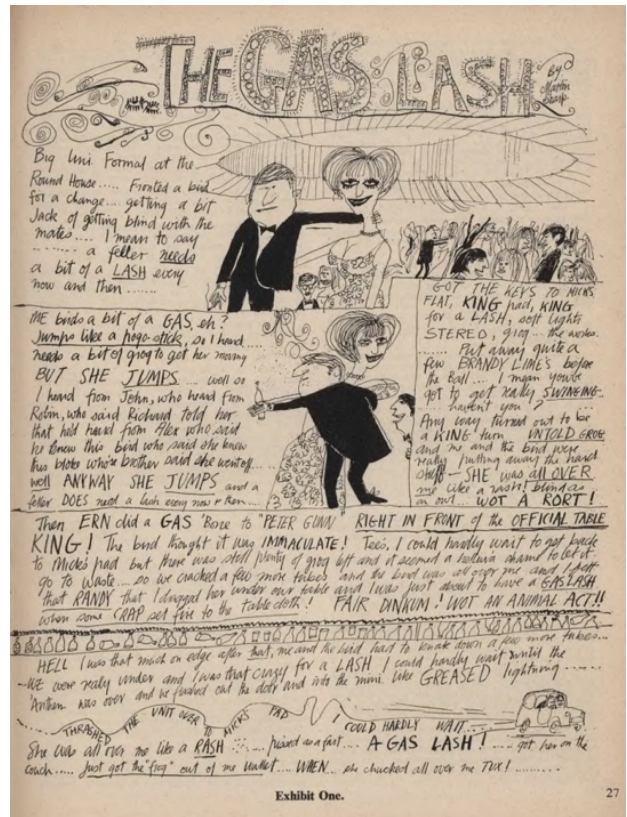 THE GAS LASH
By
Martin
Sharp
Big Uni. Formal at the
Round House..... Fronted a bird
for a change... getting a bit
Jack of getting blind with the
mates.... I mean to say
........ a feller needs
a bit of a LASH every
now and then........
THE birds a bit of a GAS, eh?
Jumps like a pogo-stick, so I heard....
needs a bit of grog to get her moving
BUT SHE JUMPS.... well so
I heard from John, who heard from
Robin, who said Richard told her
that he'd heard from Alex who said
he knew this bird who said she knew
this bloke who's brother said she went off....
well ANYWAY SHE JUMPS and a
feller DOES need a lash every now & then....
GOT THE KEYS TO MICKS
FLAT, KING pad, KING
for a LASH, soft lights
STEREO, grog... the works.
....... Put away quite a
few BRANDY LIMES before
the Ball.... I mean you've
got to get really SWINGING
haven't you?
Any way turned out to be
a KING turn UNTOLD GROG
and me and the bird were
really putting away the hard
stuff — SHE was all OVER
me like a rash! blind as
an owl.... WOT A RORT!
Then ERN did a GAS 'Bore to "PETER GUNN RIGHT IN FRONT of the OFFICIAL TABLE
KING! The bird thought it was IMMACULATE! Tee's, I could hardly wait to get back
to Micks pad but there was still plenty of grog left and it seemed a helluva shame to let it
go to waste.... so we cracked a few more tubes and the bird was all over me and I felt
that RANDY that I dragged her under our table and I was just about to have a GAS LASH
when some CRAP set fire to the table cloth! FAIR DINKUM! WOT AN ANIMAL ACT!!
HELL I was that much on edge after that, me and the bird had to knock down a few more tubes...
WE were really under and I was that crazy for a LASH I could hardly wait until the
'Anthem was over and we rushed out the door and into the mini like GREASED lightning......
THRASHED THE UNIT OVER TO MICKS PAD I COULD HARDLY WAIT....
She was all over me like a RASH..... pissed as a fart.... A GAS LASH!.... got her on the
couch..... Just got the "frog" out of me wallet.... WHEN... she chucked all over me TUX!..........
Exhibit One.
27